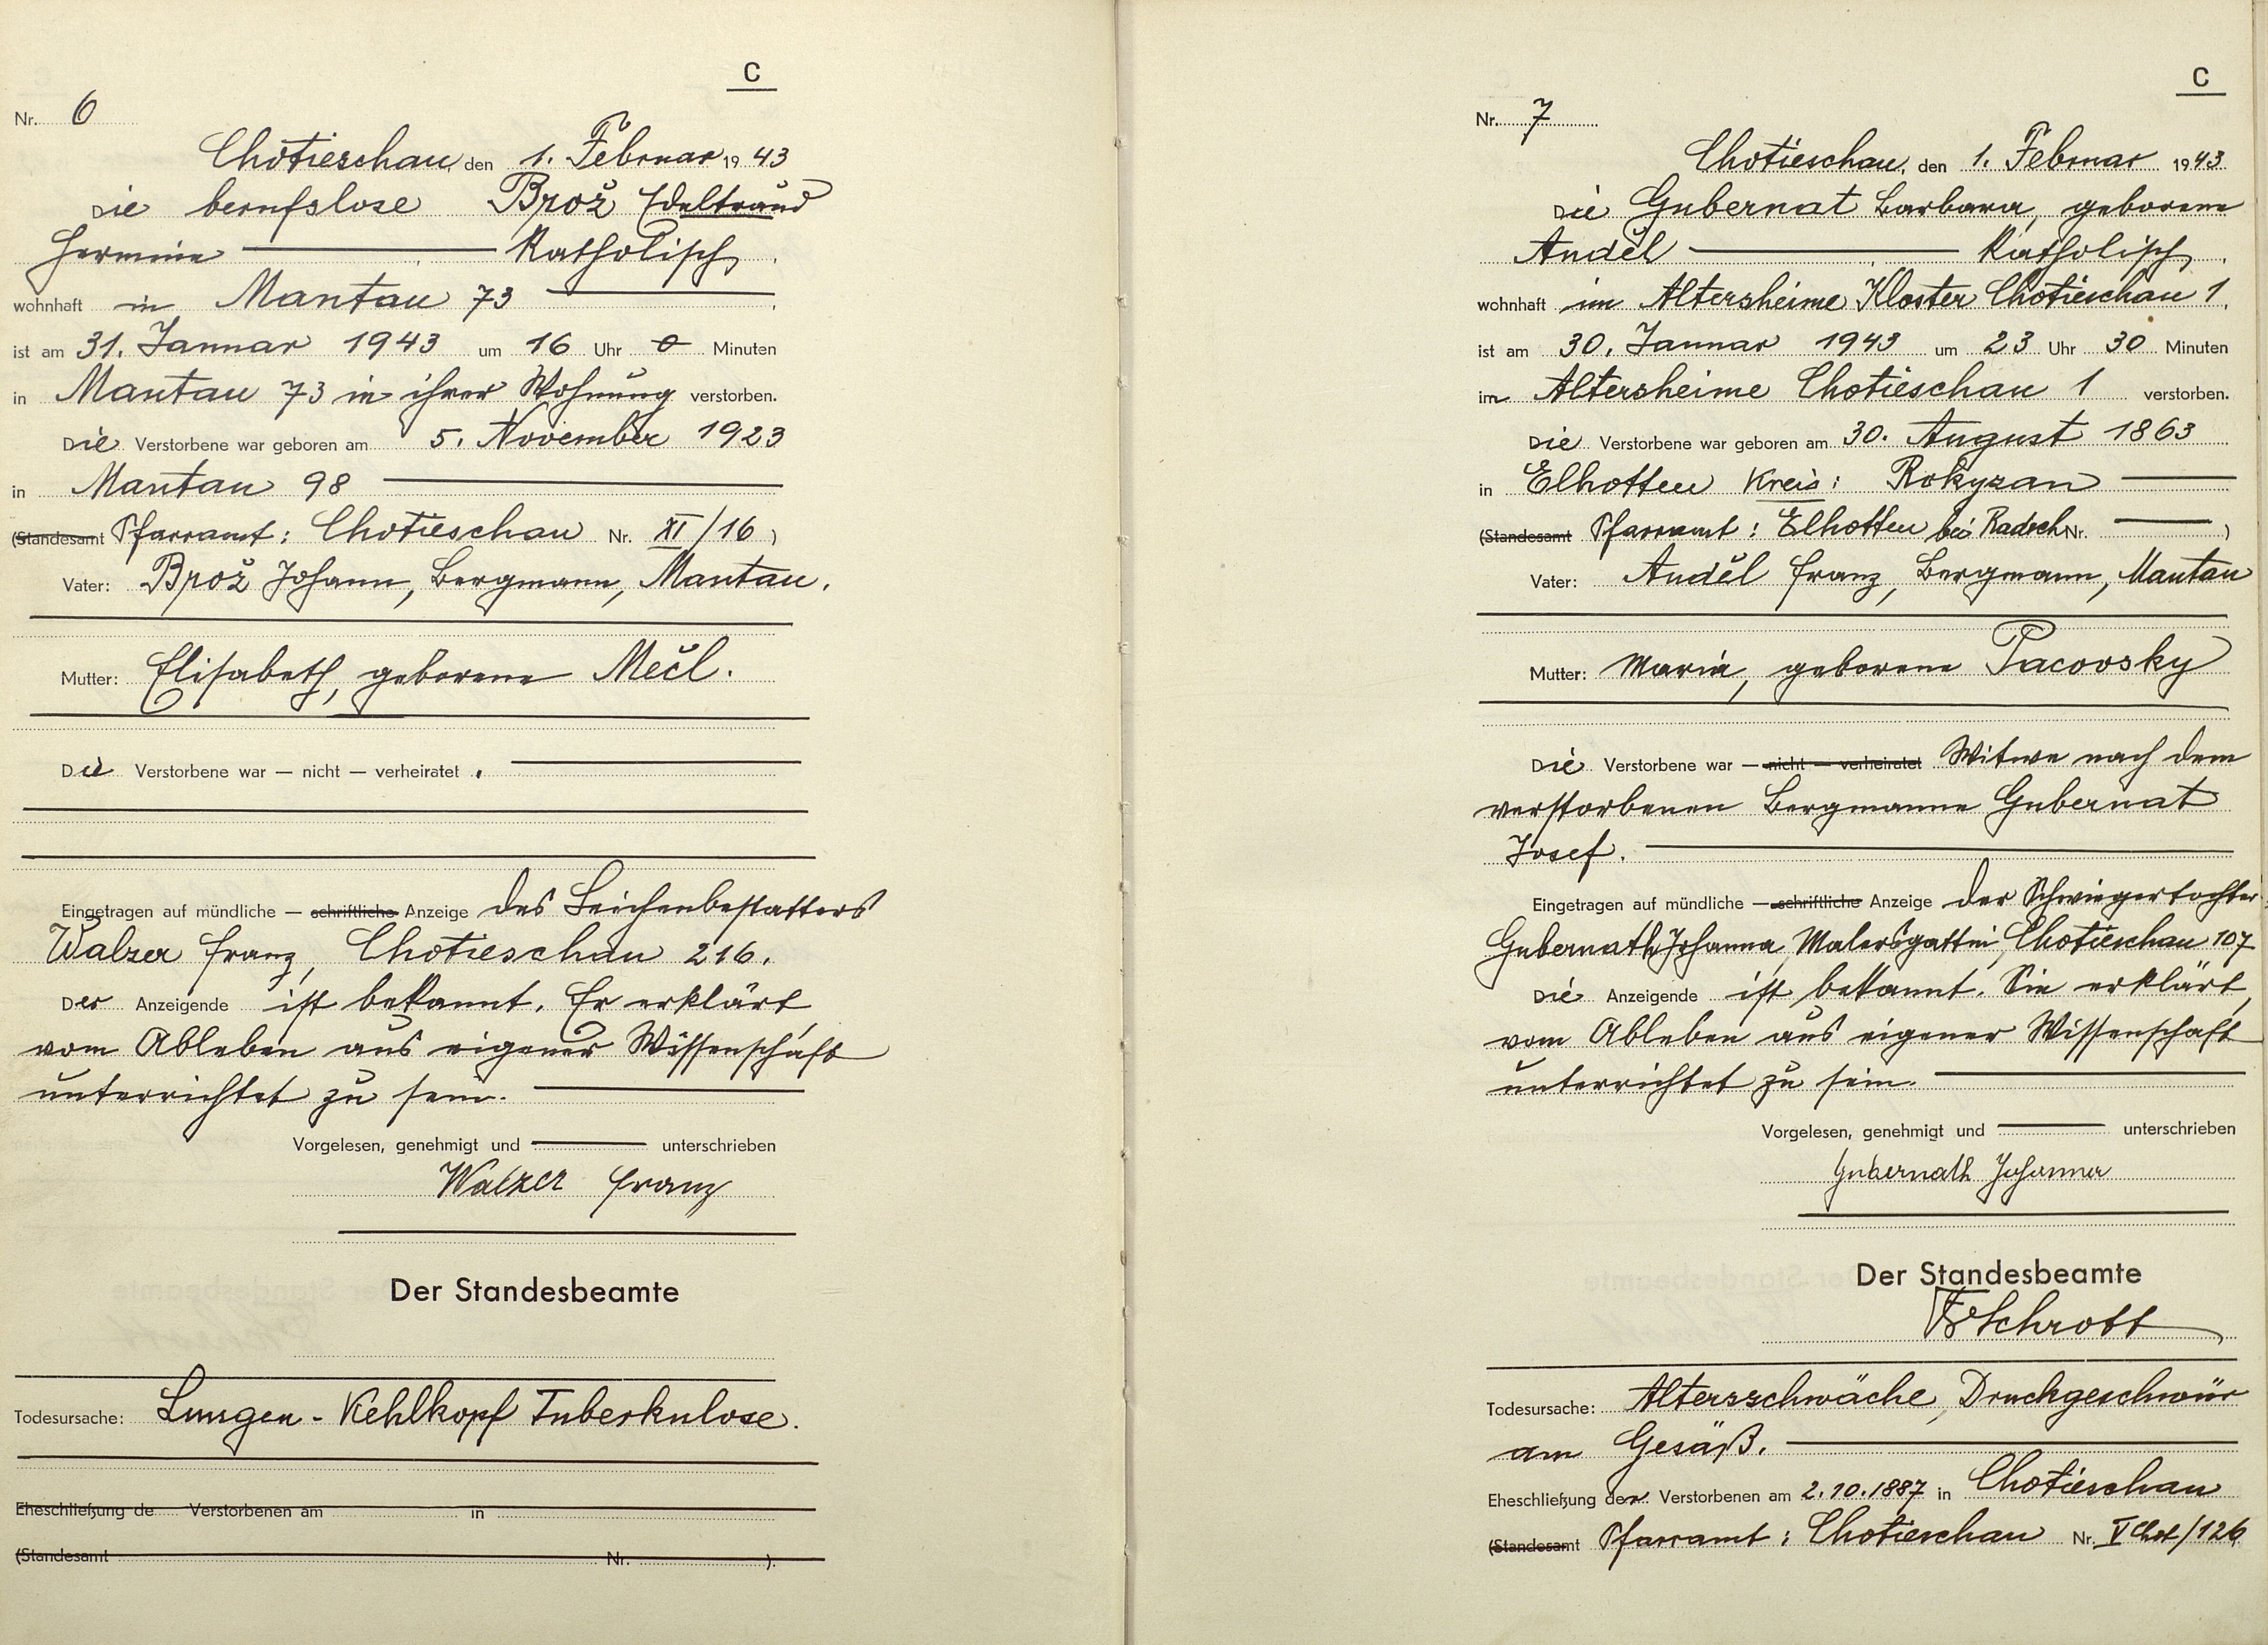 C
Nr. 6
Chotieschau, den 1. Februar 1943
Die berufslose Brož Edeltraud
Hermine katholisch,
wohnhaft in Mantau 73
ist am 31. Januar 1943 um 16 Uhr 0 Minuten
in Mantau 73 in ihrer Wohnung verstorben.
Die Verstorbene war geboren am 5. November 1923
in Mantau 98
(Standesamt Pfarramt: Chotieschau Nr. XI/16)
Vater: Brož Johann, Bergmann, Mantau.
Mutter: Elisabeth, geborene Mečl.
Die Verstorbene war — nicht — verheiratet.
Eingetragen auf mündliche — schriftliche Anzeige des Leichenbestatters
Walzer Franz, Chotieschau 216.
Der Anzeigende ist bekannt. Er erklärt,
vom Ableben aus eigener Wissenschaft
unterrichtet zu sein.
Vorgelesen, genehmigt und unterschrieben
Walzer Franz
Der Standesbeamte
Todesursache: Lungen-Kehlkopf Tuberkulose.
Eheschließung de Verstorbenen am in
(Standesamt Nr. ).
C
Nr. 7
Chotieschau, den 1. Februar 1943
Die Gubernat Barbara, geborene
Anděl katholisch,
wohnhaft im Altersheime Kloster Chotieschau 1,
ist am 30. Januar 1943 um 23 Uhr 30 Minuten
im Altersheime Chotieschau 1 verstorben.
Die Verstorbene war geboren am 30. August 1863
in Elhotten Kreis: Rokyzan
(Standesamt Pfarramt: Elhotten bei Radsch Nr. )
Vater: Anděl Franz, Bergmann, Mantau
Mutter: Maria, geborene Pacovsky
Die Verstorbene war — nicht — verheiratet Witwe nach dem
verstorbenen Bergmanne Gubernat
Josef.
Eingetragen auf mündliche — schriftliche Anzeige der Schwiegertochter
Gubernath Johanna, Malersgattin, Chotieschau 107
Die Anzeigende ist bekannt. Sie erklärt,
vom Ableben aus eigener Wissenschaft
unterrichtet zu sein.
Vorgelesen, genehmigt und unterschrieben
Gubernath Johanna
Der Standesbeamte
Schrott
Todesursache: Altersschwäche, Druckgeschwür
am Gesäß.
Eheschließung der Verstorbenen am 2.10.1887 in Chotieschau
(Standesamt Pfarramt: Chotieschau Nr. V Chot/126